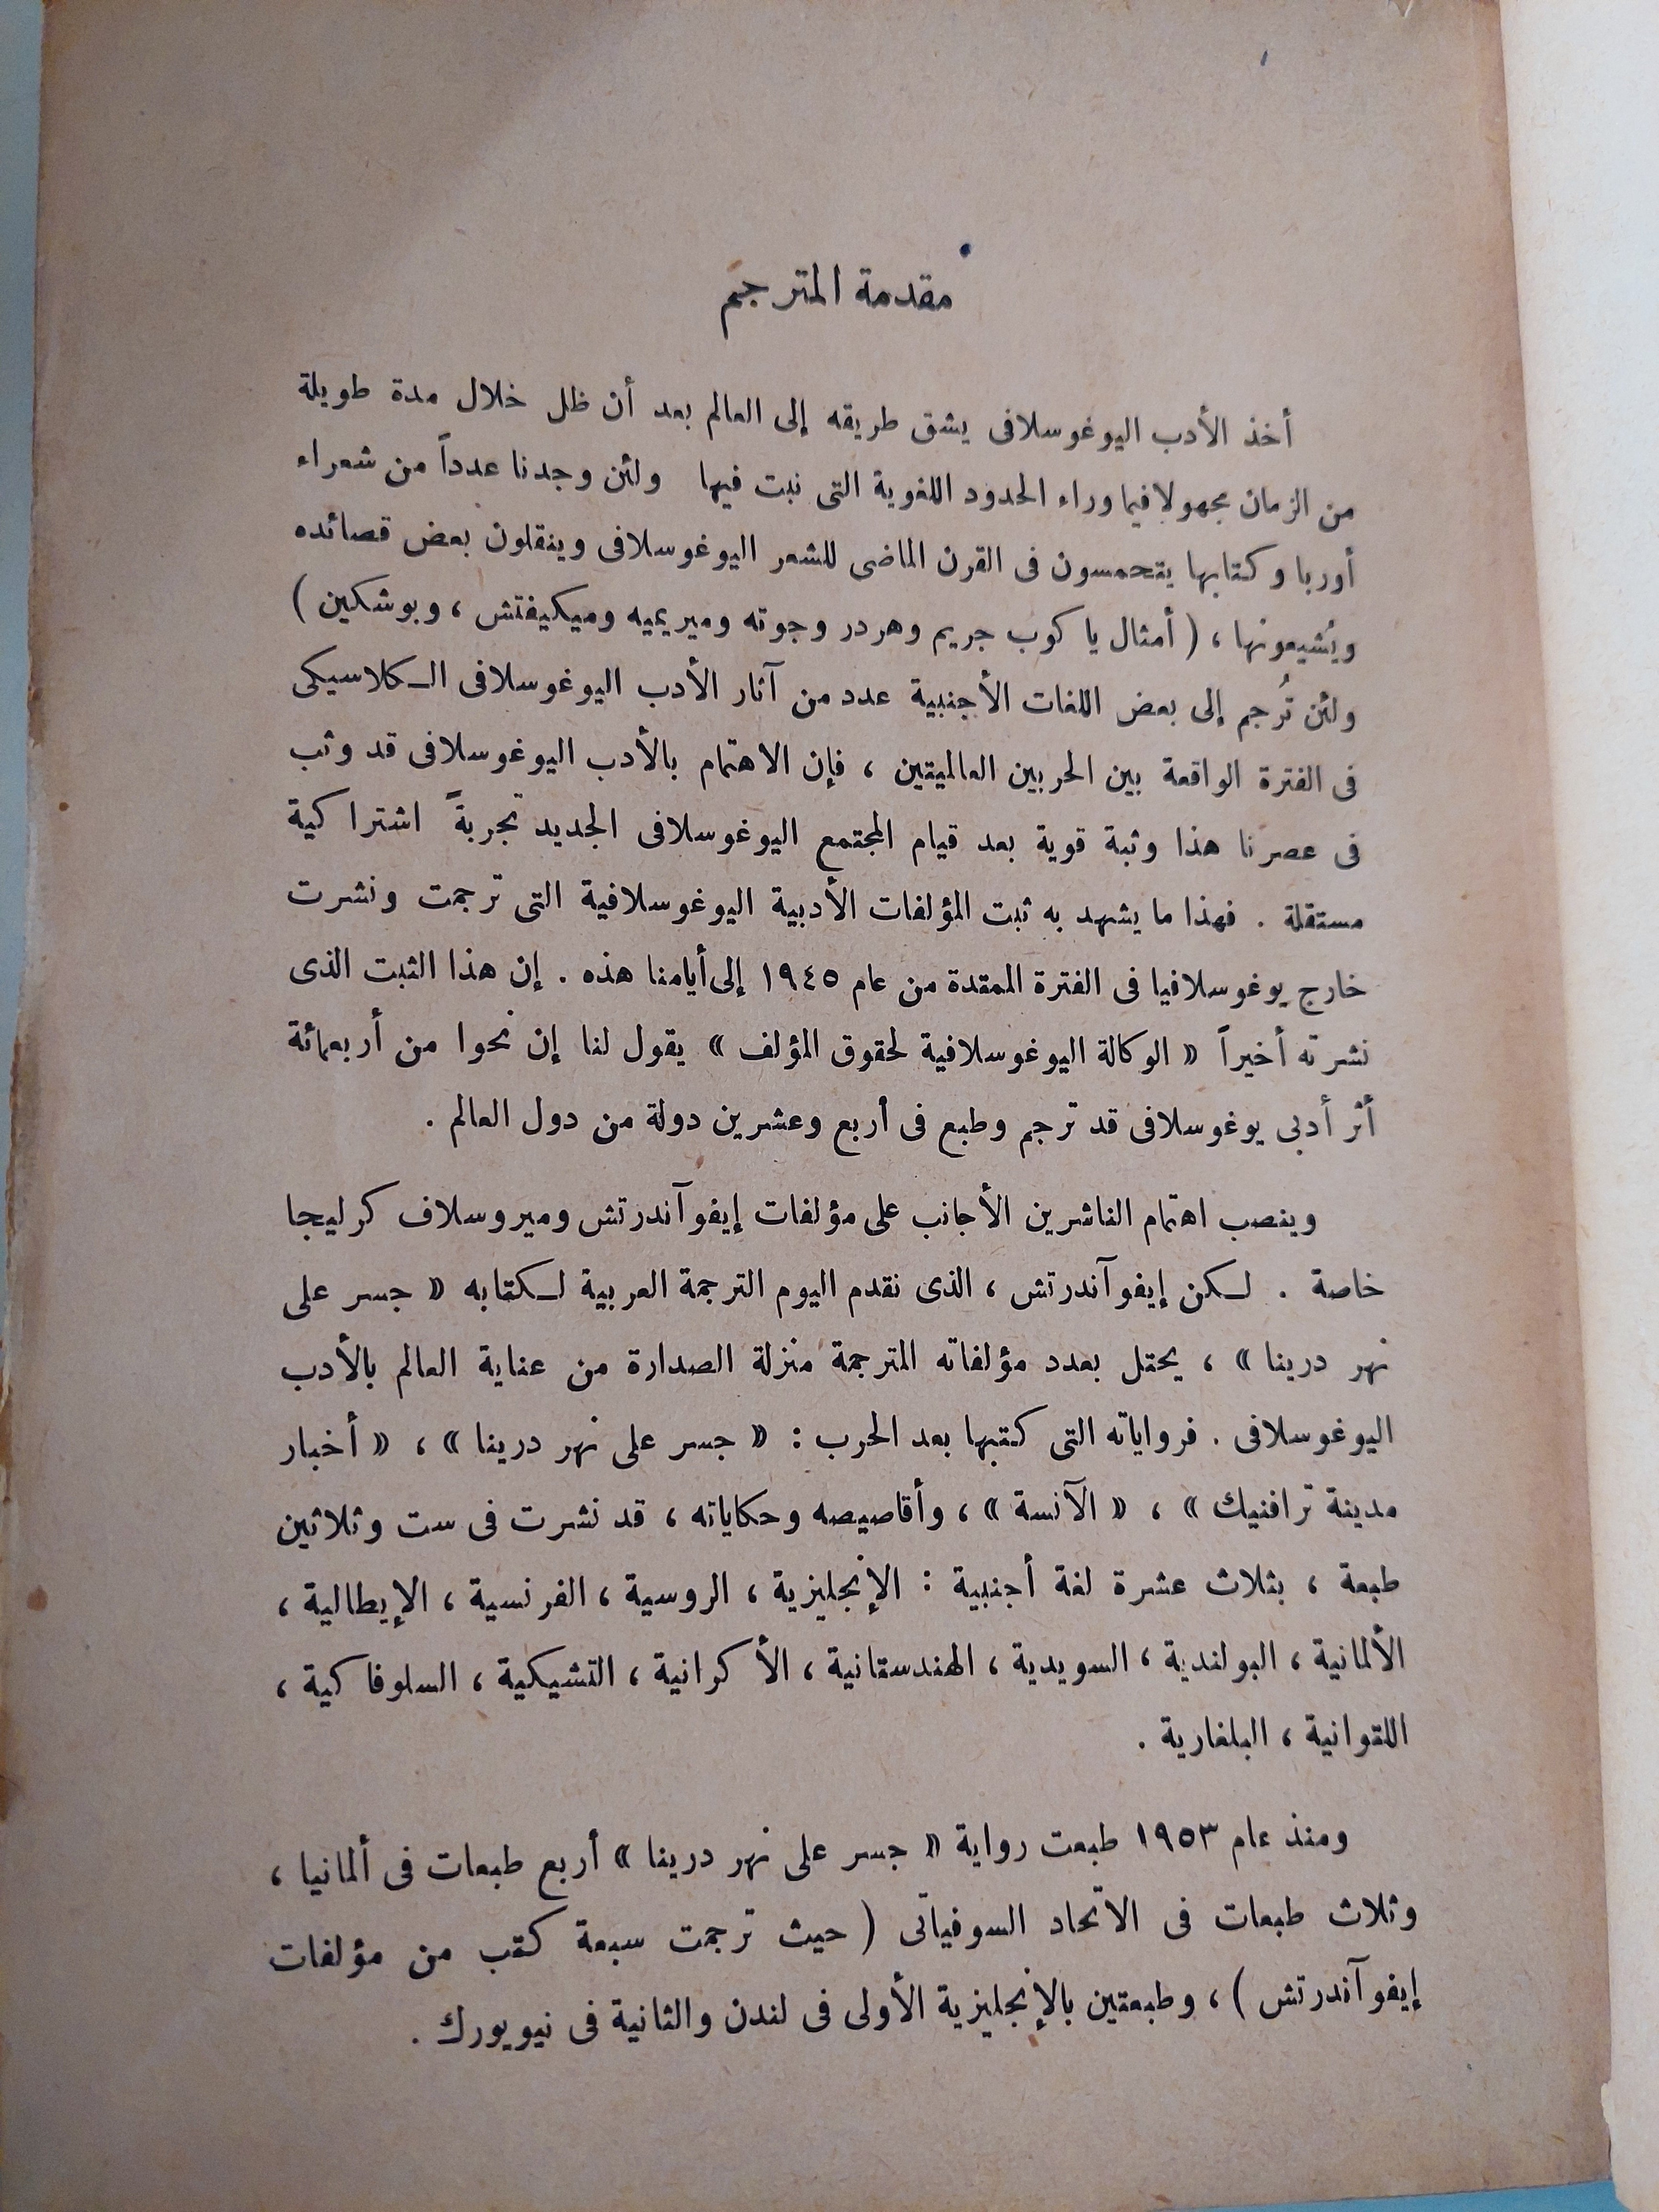 مقدمة المترجم
أخذ الأدب اليوغوسلافى يشق طريقه إلى العالم بعد أن ظل خلال مدة طويلة
من الزمان مجهولا فيما وراء الحدود اللغوية التى نبت فيها ولئن وجدنا عدداً من شعراء
أوربا وكتابها يتحمسون فى القرن الماضى للشعر اليوغوسلافى وينقلون بعض قصائده
ويُشيعونها ، ( أمثال ياكوب جريم وهردر وجوته وميريميه وميكيفتش ، وبوشكين )
ولئن تُرجم إلى بعض اللغات الأجنبية عدد من آثار الأدب اليوغوسلافى الـكلاسيكى
فى الفترة الواقعة بين الحربين العالميتين ، فإن الاهتمام بالأدب اليوغوسلافى قد وثب
فى عصرنا هذا وثبة قوية بعد قيام المجتمع اليوغوسلافى الجديد تجربةً اشتراكية
مستقلة . فهذا ما يشهد به ثبت المؤلفات الأدبية اليوغوسلافية التى ترجمت ونشرت
خارج يوغوسلافيا فى الفترة الممتدة من عام ١٩٤٥ إلى أيامنا هذه . إن هذا الثبت الذى
نشرته أخيراً « الوكالة اليوغوسلافية لحقوق المؤلف » يقول لنا إن نحوا من أربعمائة
أثر أدبى يوغوسلافى قد ترجم وطبع فى أربع وعشرين دولة من دول العالم .
وينصب اهتمام الناشرين الأجانب على مؤلفات إيفو آندرتش وميروسلاف كرليجا
خاصة . لـكن إيفو آندرتش ، الذى نقدم اليوم الترجمة العربية لـكتابه « جسر على
نهر درينا » ، يحتل بعدد مؤلفاته المترجمة منزلة الصدارة من عناية العالم بالأدب
اليوغوسلافى . فرواياته التى كتبها بعد الحرب : « جسر على نهر درينا » ، « أخبار
مدينة ترافنيك » ، « الآنسة » ، وأقاصيصه وحكاياته ، قد نشرت فى ست وثلاثين
طبعة ، بثلاث عشرة لغة أجنبية : الإنجليزية ، الروسية ، الفرنسية ، الإيطالية ،
الألمانية ، البولندية ، السويدية ، الهندستانية ، الأكرانية ، التشيكية ، السلوفاكية ،
اللتوانية ، البلغارية .
ومنذ عام ١٩٥٣ طبعت رواية « جسر على نهر درينا » أربع طبعات فى ألمانيا ،
وثلاث طبعات فى الاتحاد السوفياتى ( حيث ترجمت سبعة كتب من مؤلفات
إيفو آندرتش ) ، وطبعتين بالإنجليزية الأولى فى لندن والثانية فى نيويورك .